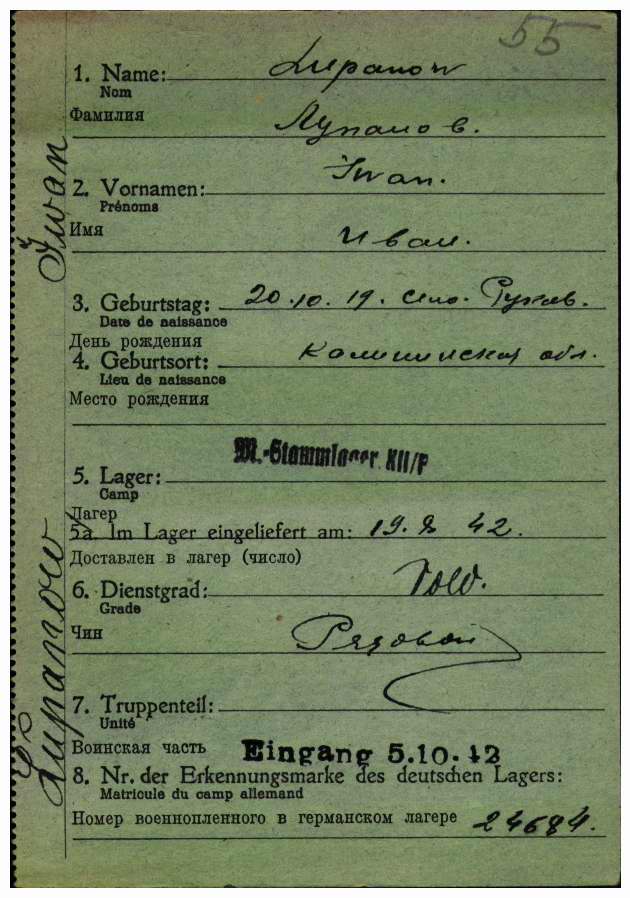 55
1. Name: Lupanow
Nom
Фамилия Лупанов.
2. Vornamen: Iwan.
Prénoms
Имя Иван.
3. Geburtstag: 20.10.19. село. Рукав.
Date de naissance
День рождения
4. Geburtsort: Калининская обл.
Lieu de naissance
Место рождения
M.-Stammlager XII/F
5. Lager:
Camp
Лагер
5a. Im Lager eingeliefert am: 19. 8 42.
Доставлен в лагер (число)
6. Dienstgrad: Sold.
Grade
Чин Рядовой
7. Truppenteil:
Unité
Воинская часть Eingang 5.10.42
8. Nr. der Erkennungsmarke des deutschen Lagers:
Matricule du camp allemand
Номер военнопленного в германском лагере 24684.
Lupanow Iwan